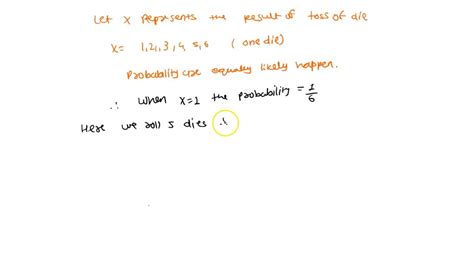 Let X Represents the result of toss of die
X= 1,2,3,4 5,6 (one die)
Probability are equally likely happen.
∴ When X=1 the probability = 1/6
Here we roll 5 dies